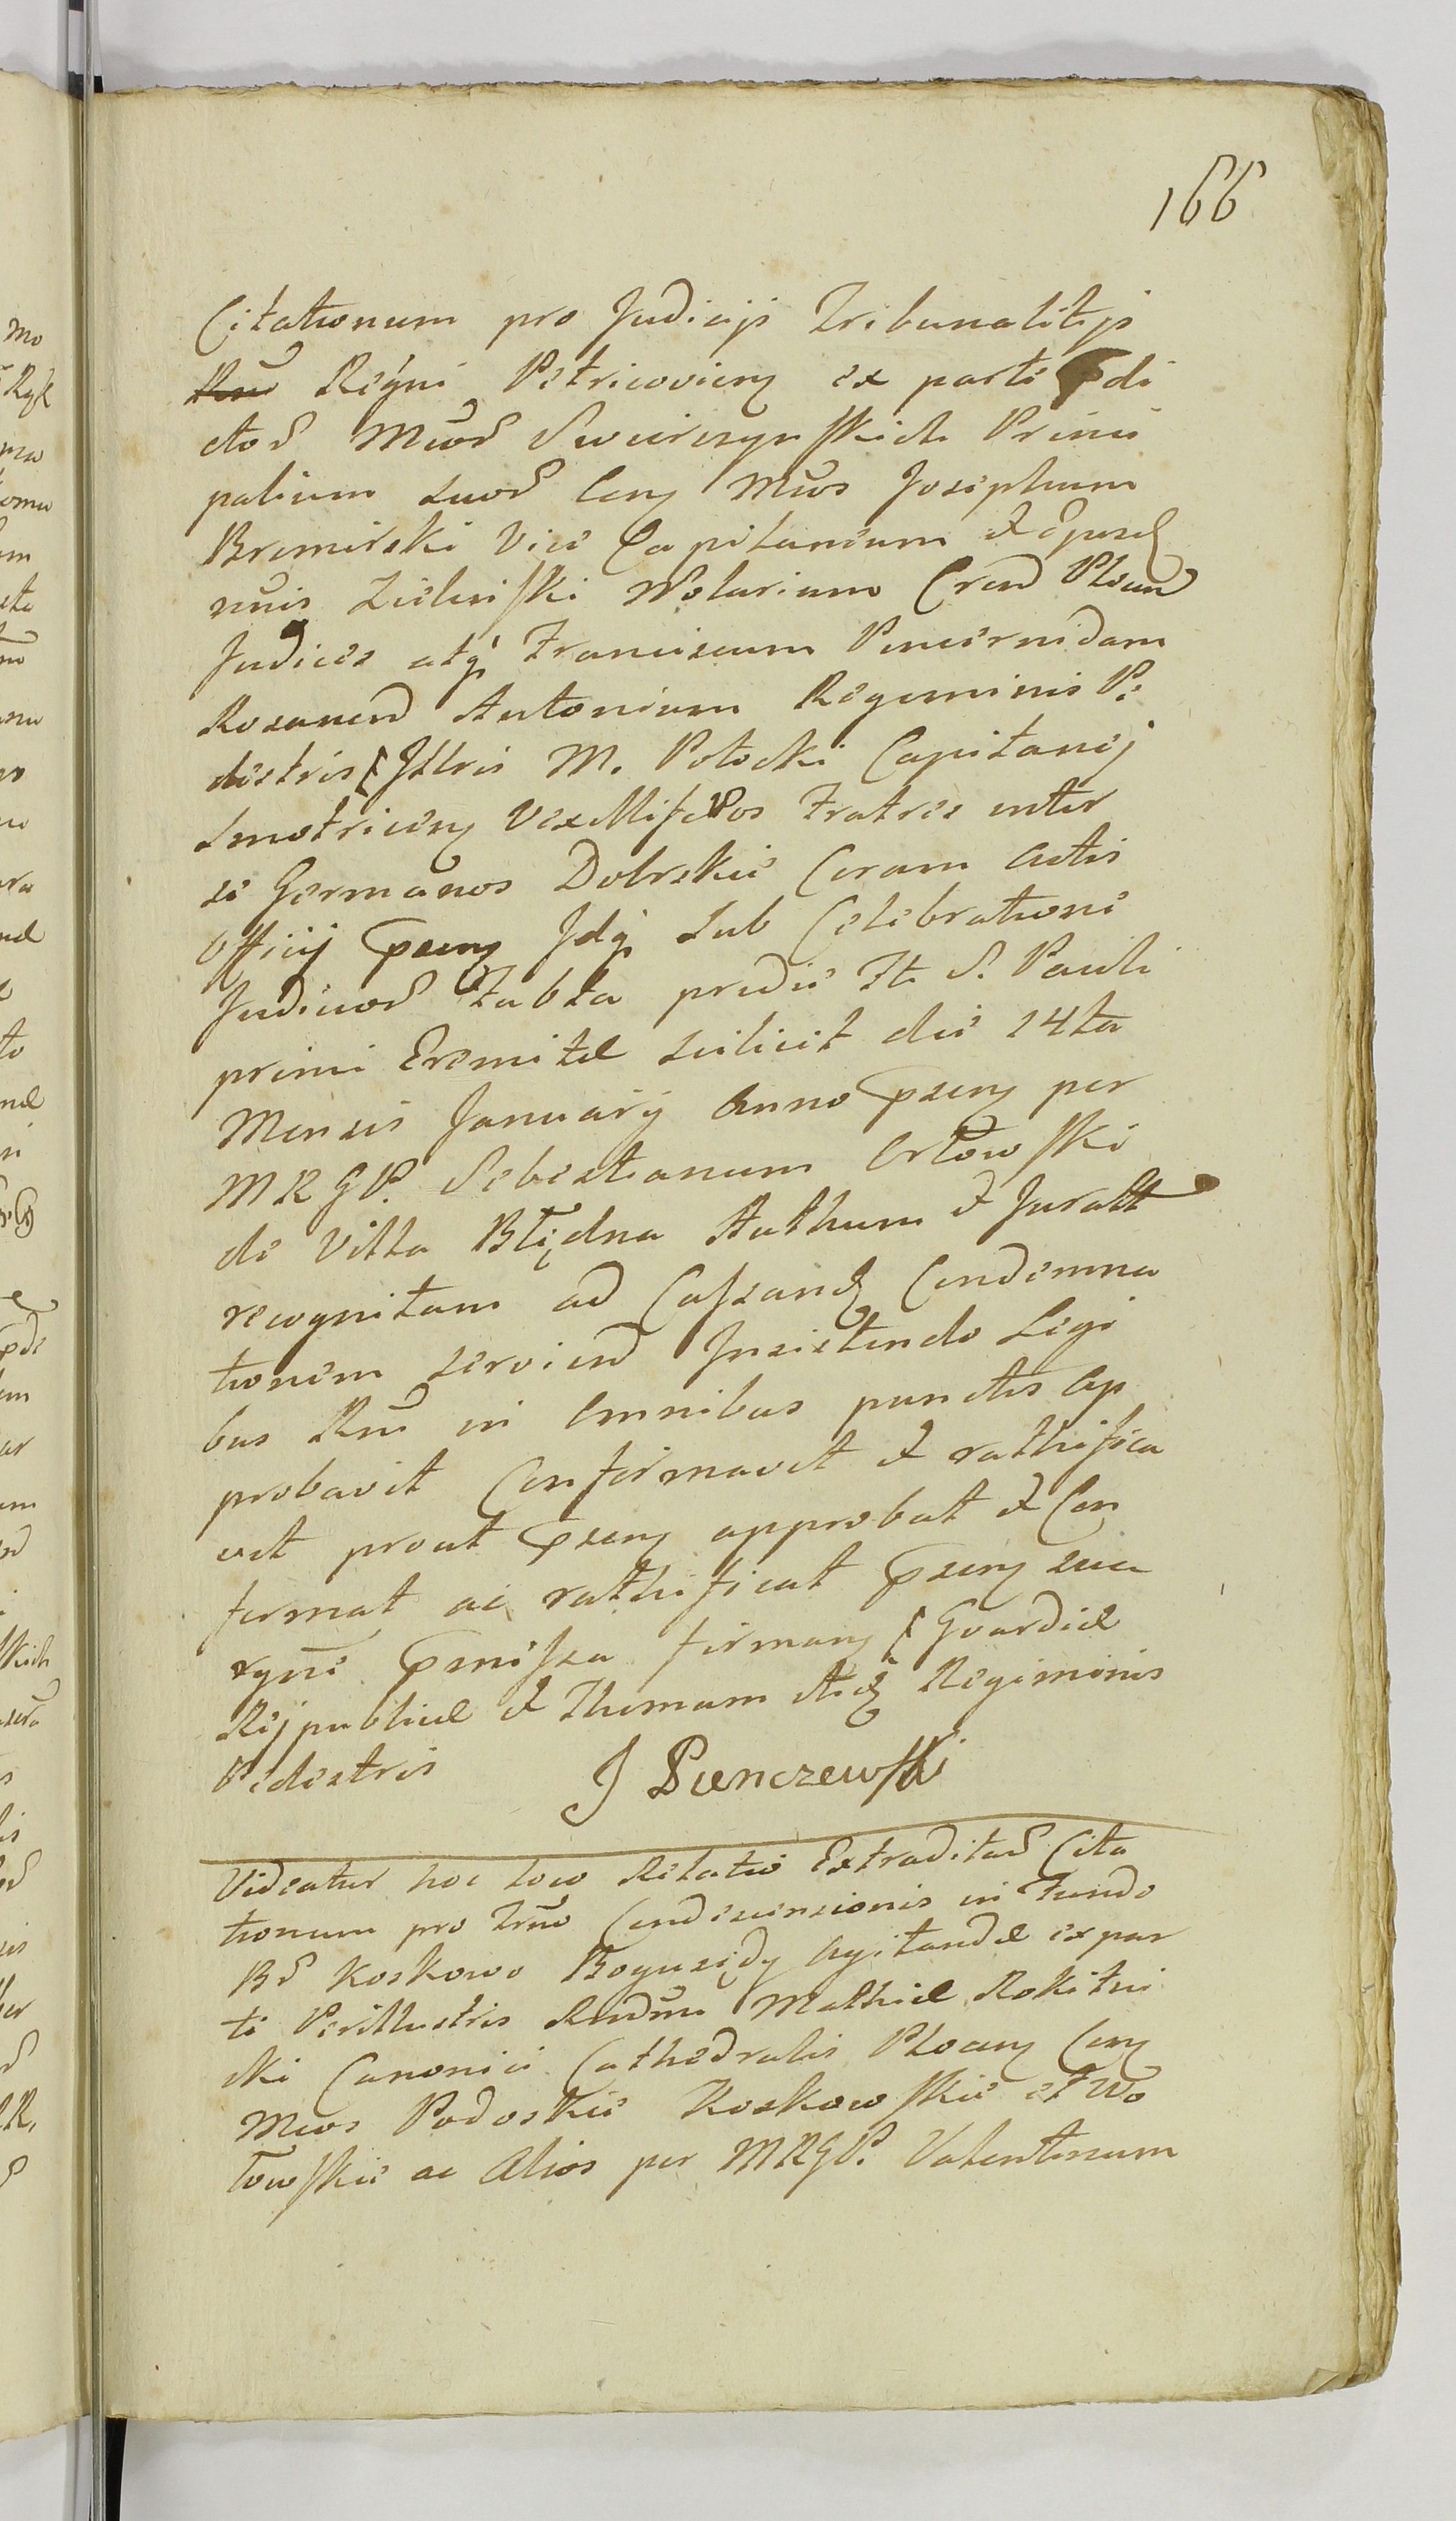 166
Citationum pro Judicijs Tribunalitijs
Regni Petricovien ex parte pdi
ctor Mwor Swierczynskich Princi
palium suor Con Mwos Josephum
Bromirski Vice Capitaneum & ejusd
nnis Zielinski Notarium Cren Plocen
Judices atq Franciscum Pincernidam
Rosanen Antonium Regiminis Pe
destris Illris M. Potocki Capitanej
Smotricien Vexilliferos Fratres inter
se Germanos Dobrskie Coram Actis
Officij psen Idq Sub Celebratione
Judicior Fabta pridie Ft S. Pauli
primi Eremitæ scilicit die 14ta
Mensis Januarij Anno psen per
MRGP. Sebestianum Orłowski
de Villa Błędna Authum & Juratt
recognitam ad Cassand Condemna
tionem servien Insistendo Legi
bus Rni in Omnibus punctis Ap
probavit Confirmavit & rathifica
vit prout psen approbat & Con
firmat ac rathificat psen sua
rgni pmissa firman Gvardiæ
Rejpublicæ & Thomam Regiminis
Pedestris J Pienczewski
Videatur hoc loco Relatio Extraditar Cita
tionum pro Trno Condescensionis in Fundo
Br Koskowo Bogusędy Agitandæ ex par
te Perillustris Rndmi Mathiæ Rokitni
cki Canonici Cathedralis Plocen Con
Mwos Podoskie Koskowskie et Wo
łowskie ac Alios per MRGP. Valentinum